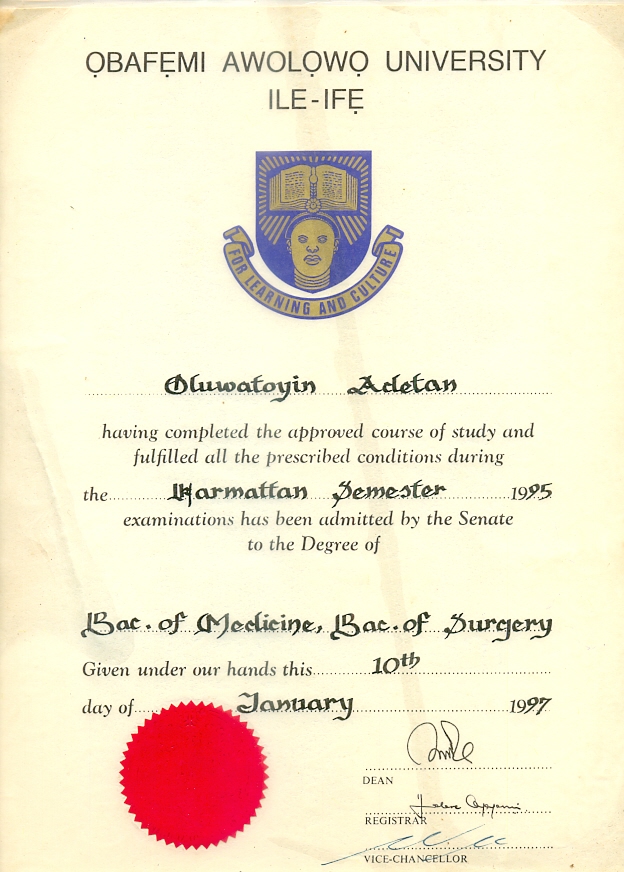 ỌBAFẸMI AWOLỌWỌ UNIVERSITY
ILE-IFẸ
FOR LEARNING AND CULTURE
Oluwatoyin Adetan
having completed the approved course of study and
fulfilled all the prescribed conditions during
the Harmattan Semester 1995
examinations has been admitted by the Senate
to the Degree of
Bac. of Medicine, Bac. of Surgery
Given under our hands this 10th
day of January 1997
DEAN
REGISTRAR
VICE-CHANCELLOR